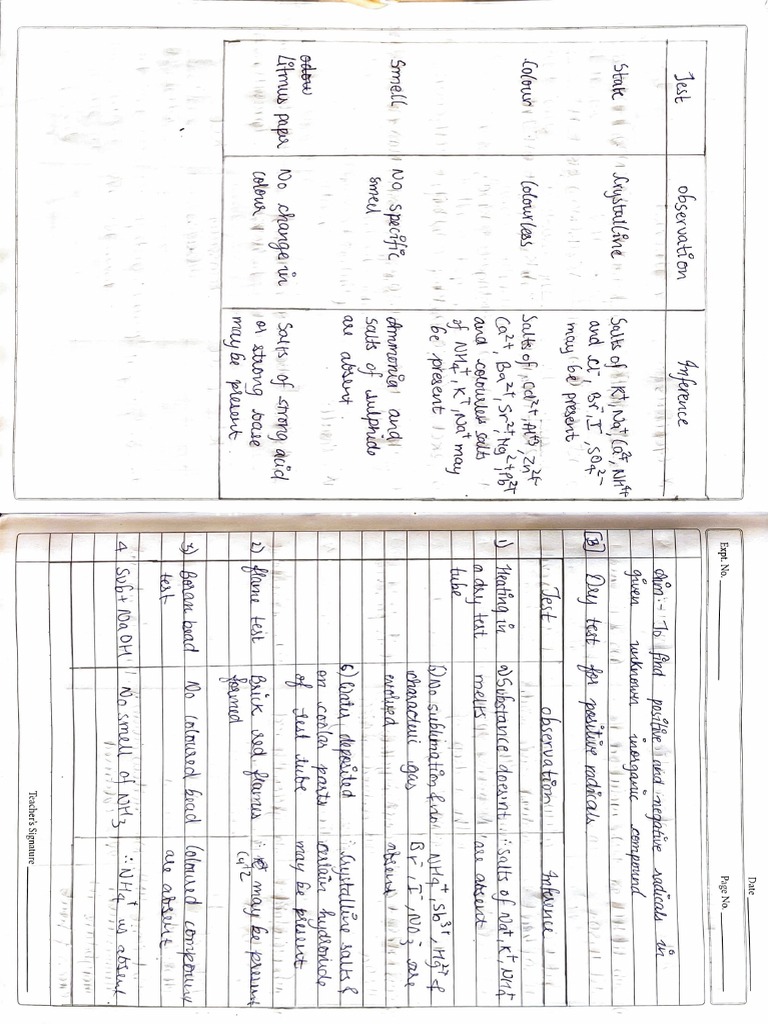 Test
observation
Inference
State
Crystalline
Salts of K⁺, Na⁺, Ca²⁺, NH⁴⁺
and Cl⁻, Br⁻, I⁻, SO₄²⁻
may be present
Colour
Colourless
Salts of, Cd²⁺, Al⁺³, Zn²⁺
Ca²⁺, Ba²⁺, Sr²⁺, Mg²⁺, Pb²⁺
and colourless salts
of NH₄⁺, K⁺, Na⁺ may
be present
Smell
No specific
smell
Ammonia and
salts of sulphide
are absent.
odour
Litmus paper
No change in
colour
Salts of strong acid
or strong base
may be present
Expt. No.
Date
Page No.
Aim:- To find positive and negative radicals in
given unknown inorganic compound
[B] Dry test for positive radicals
Test
observation
Inference
1) Heating in
a dry test
tube
a) Substance doesn't
melts
∴ salts of Na⁺, K⁺, NH₄⁺
are absent
b) No sublimation & no
characteri gas
evolved
NH₄⁺ Sb³⁺, Hg²⁺ &
Br⁻, I⁻, NO₃⁻ are
absent
6) Water deposited
on cooler parts
of test tube
∴ Crystalline salts &
certain hydroxide
may be present
2) flame test
Brick red flames
formed
∴ may be present
Ca⁺²
3) Borax bead
test
No coloured bead
Coloured compound
are absent
4 Sub + NaOH
No smell of NH₃
∴ NH₄⁺ is absent
Teacher's Signature